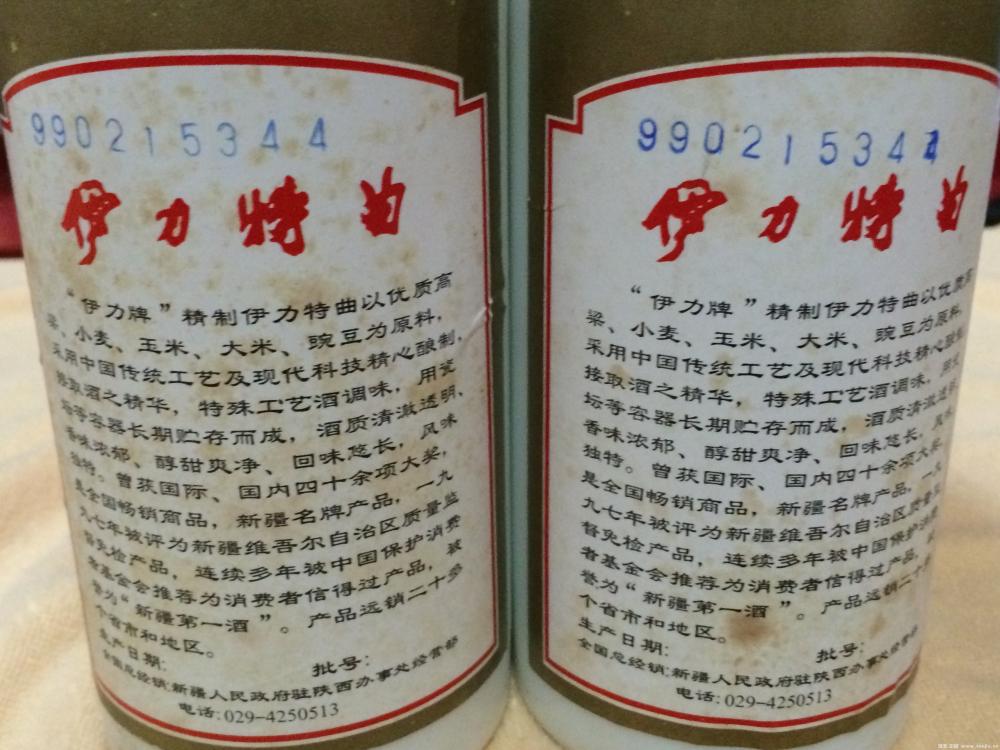 990215344
伊力特曲
“伊力牌”精制伊力特曲以优质高
梁、小麦、玉米、大米、豌豆为原料，
采用中国传统工艺及现代科技精心酿制，
接取酒之精华，特殊工艺酒调味，用瓷
坛等容器长期贮存而成，酒质清澈透明、
香味浓郁、醇甜爽净、回味悠长，风味
独特。曾获国际、国内四十余项大奖，
是全国畅销商品，新疆名牌产品，一九
九七年被评为新疆维吾尔自治区质量监
督免检产品，连续多年被中国保护消费
者基金会推荐为消费者信得过产品，被
誉为“新疆第一酒”。产品远销二十多
个省市和地区。
生产日期： 批号：
全国总经销:新疆人民政府驻陕西办事处经营部
电话:029-4250513
990215344
伊力特曲
“伊力牌”精制伊力特曲以优质高
梁、小麦、玉米、大米、豌豆为原料，
采用中国传统工艺及现代科技精心酿制
接取酒之精华，特殊工艺酒调味，用瓷
坛等容器长期贮存而成，酒质清澈透明
香味浓郁、醇甜爽净、回味悠长，风味
独特。曾获国际、国内四十余项大奖，
是全国畅销商品，新疆名牌产品，一九
九七年被评为新疆维吾尔自治区质量监
督免检产品，连续多年被中国保护消费
者基金会推荐为消费者信得过产品，被
誉为“新疆第一酒”。产品远销二十多
个省市和地区。
生产日期： 批号：
全国总经销:新疆人民政府驻陕西办事处经营部
电话:029-4250513